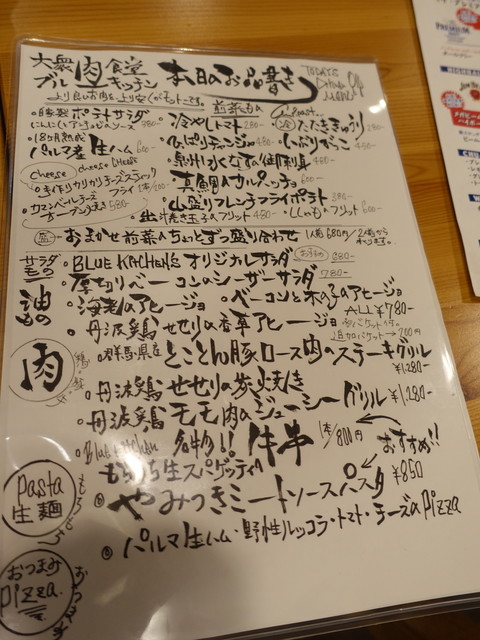 大衆肉食堂
ブルーキッチン
本日のお品書き
TODAY'S
DINNER
MENU
より良いお肉を、より安くがモットーです。
前菜もの
自家製ポテトサラダ
380-
冷やしトマト 280-
たたききゅうり 280-
18ヶ月熟成
パルマ産生ハム 600-
いぶりがっこ 480-
泉州水なすのお刺身 480-
cheese cheese cheese
cheese
真鯛のカルパッチョ 600-
モッツァレラチーズスティック
フライ
カマンベールチーズ
オーブン焼き 580-
山盛りフレンチフライポテト 380-
出汁巻き玉子のフリット 480-
ししゃものフリット 600-
おまかせ前菜のちょっとずつ盛り合わせ 1人前680円/2人前から
サラダもの
BLUE KITCHEN'S オリジナルサラダ おすすめ 980-
厚切りベーコンのシーザーサラダ 780-
油もの
海老のアヒージョ
ベーコンときの子のアヒージョ
ALL ¥780-
丹波鶏せせりの香草アヒージョ
追加バケット→200円
肉
群馬県産 とことん豚ロース肉のステーキグリル
¥1,280-
丹波鶏 せせりの炭火焼き
丹波鶏 モモ肉のジューシーグリル ¥1,280-
Blue kitchen 名物!! 牛串 1本/800円
おすすめ!!
pasta
生麺
もちもち生スパゲッティ
やみつきミートソースパスタ ¥850
おつまみ
pizza
パルマ生ハム・野性ルッコラ・トマト・チーズのpizza
PREMIUM